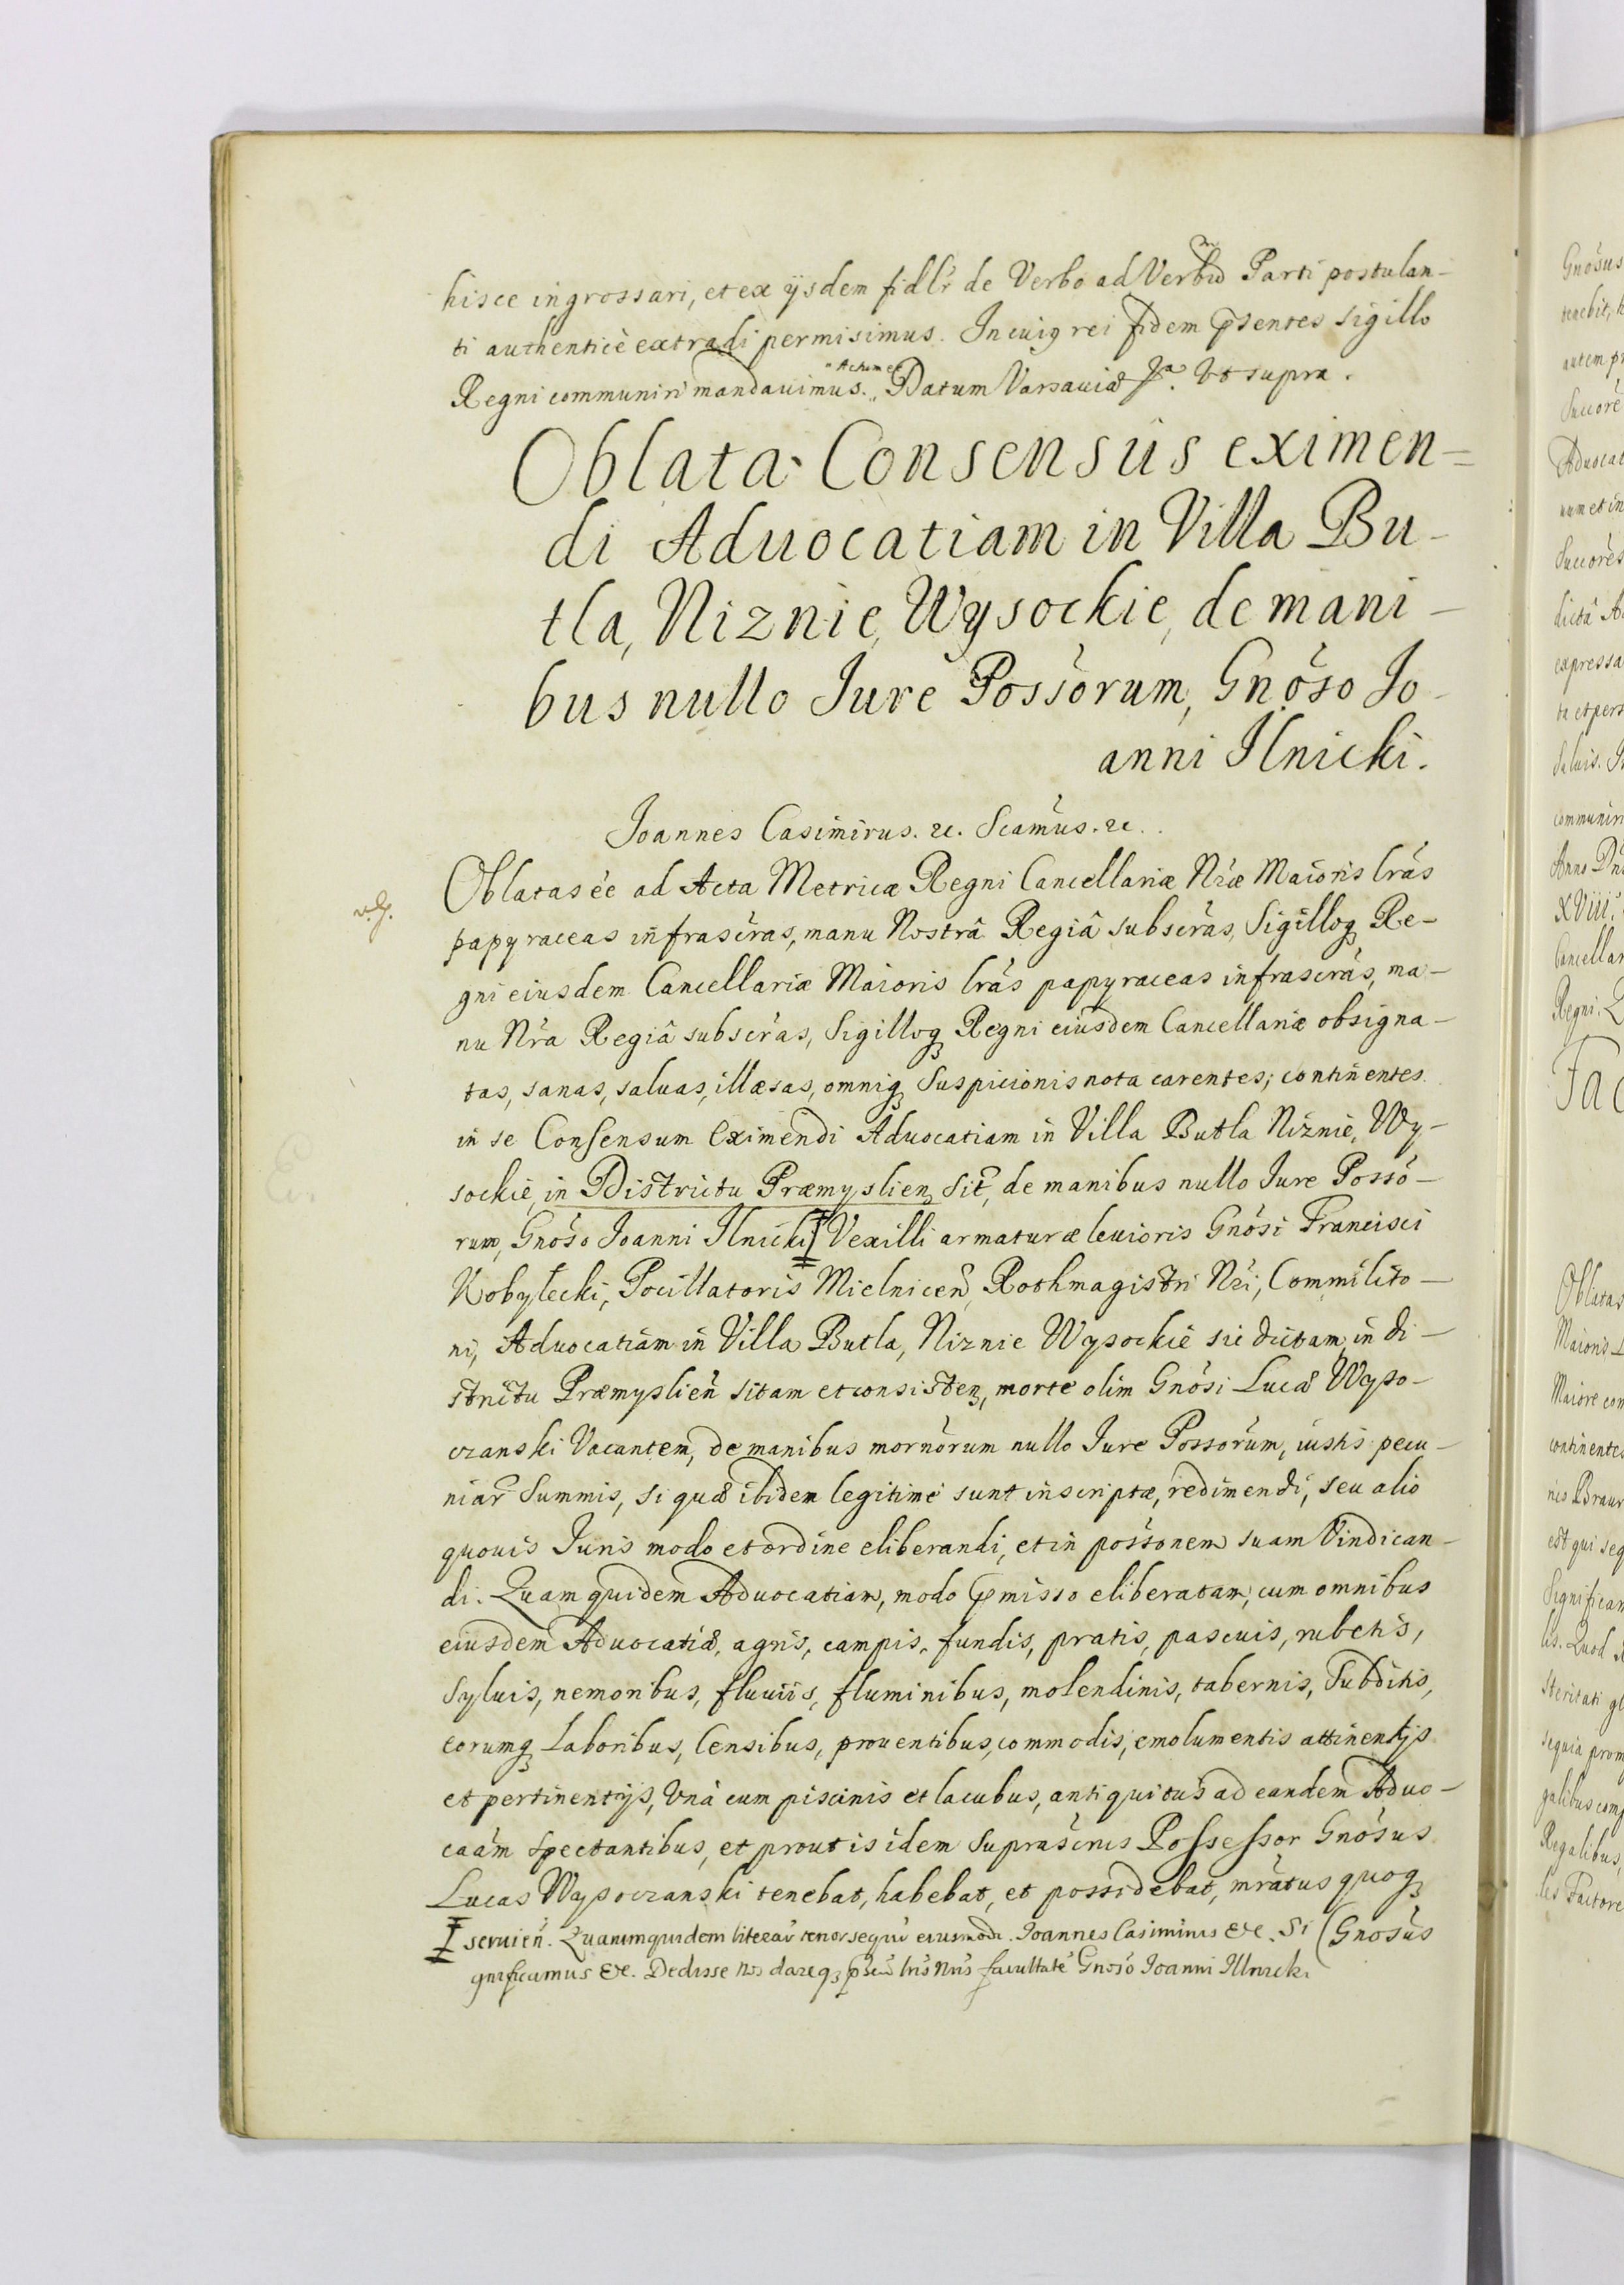 hisce ingrossari, et ex ijsdem fidlr de Verbo ad Verbū Parti postulan-
ti authenticè extradi permisimus. In cuiq rei fidem pſentes sigillo
Regni communiri mandauimus. Actum et Datum Varsauiæ Fa. Vt supra.
Oblata Consensûs eximen=
di Aduocatiam in Villa Bu-
tla, Niznie, Wysockie, de mani-
bus nullo Jure Possorum, Gnoso Jo-
anni Ilnicki.
Joannes Casimirus. &c. Scamus. &c.
Oblatas ee ad Acta Metricæ Regni Cancellariæ Nræ Maioris lras
papyraceas infrascras, manu Nostrâ Regiâ subscras, Sigilloq Re-
gni eiusdem Cancellariæ Maioris lras papyraceas infrascras, ma-
nu Nra Regiâ subscras, Sigilloq Regni eiusdem Cancellariæ obsigna-
tas, sanas, saluas, illæsas, omniq Suspicionis nota carentes; continentes
in se Consensum Eximendi Aduocatiam in Villa Butla Niznie, Wy-
sockie, in Districtu Præmyslien Sit, de manibus nullo Jure Posso-
rum, Gnoso Joanni Ilnicki Vexilli armaturæ leuioris Gnosi Francisci
Kobyłecki, Pocillatoris Mielnicen, Rothmagistri Nri, Commilito-
ni, Aduocatiam in Villa Butla, Niznie Wysockie sic dictam, in di-
strictu Præmyslien sitam et consisten, morte olim Gnosi Lucæ Wyso-
czanski Vacantem, de manibus mornorum nullo Jure Possorum, iustis pecu-
niar Summis, si quæ ibidem legitime sunt inscriptæ, redimendi, seu alio
quouis Juris modo et ordine eliberandi, et in possonem suam Vindican-
di. Quam quidem Aduocatiam, modo pmisso eliberatam, cum omnibus
eiusdem Aduocatiæ, agris, campis, fundis, pratis, pascuis, rubetis,
Syluis, nemoribus, fluuiis, fluminibus, molendinis, tabernis, Subditis,
eorumq Laboribus, Censibus, prouentibus, commodis, emolumentis attinentijs
et pertinentijs, Vnà cum piscinis et lacubus, antiquitus ad eandem Aduo-
caam Spectantibus, et prout is idem Suprascrus Possessor Gnosus
Lucas Wysoczanski tenebat, habebat, et possidebat, mratus quoq
seruien. Quarumquidem literar tenor sequir eiusmodi. Joannes Casimirus &c. Si (Gnosus
gnificamus &c. Dedisse Nos dareq psen lris Nris facultate Gnoso Joanni Illnicki